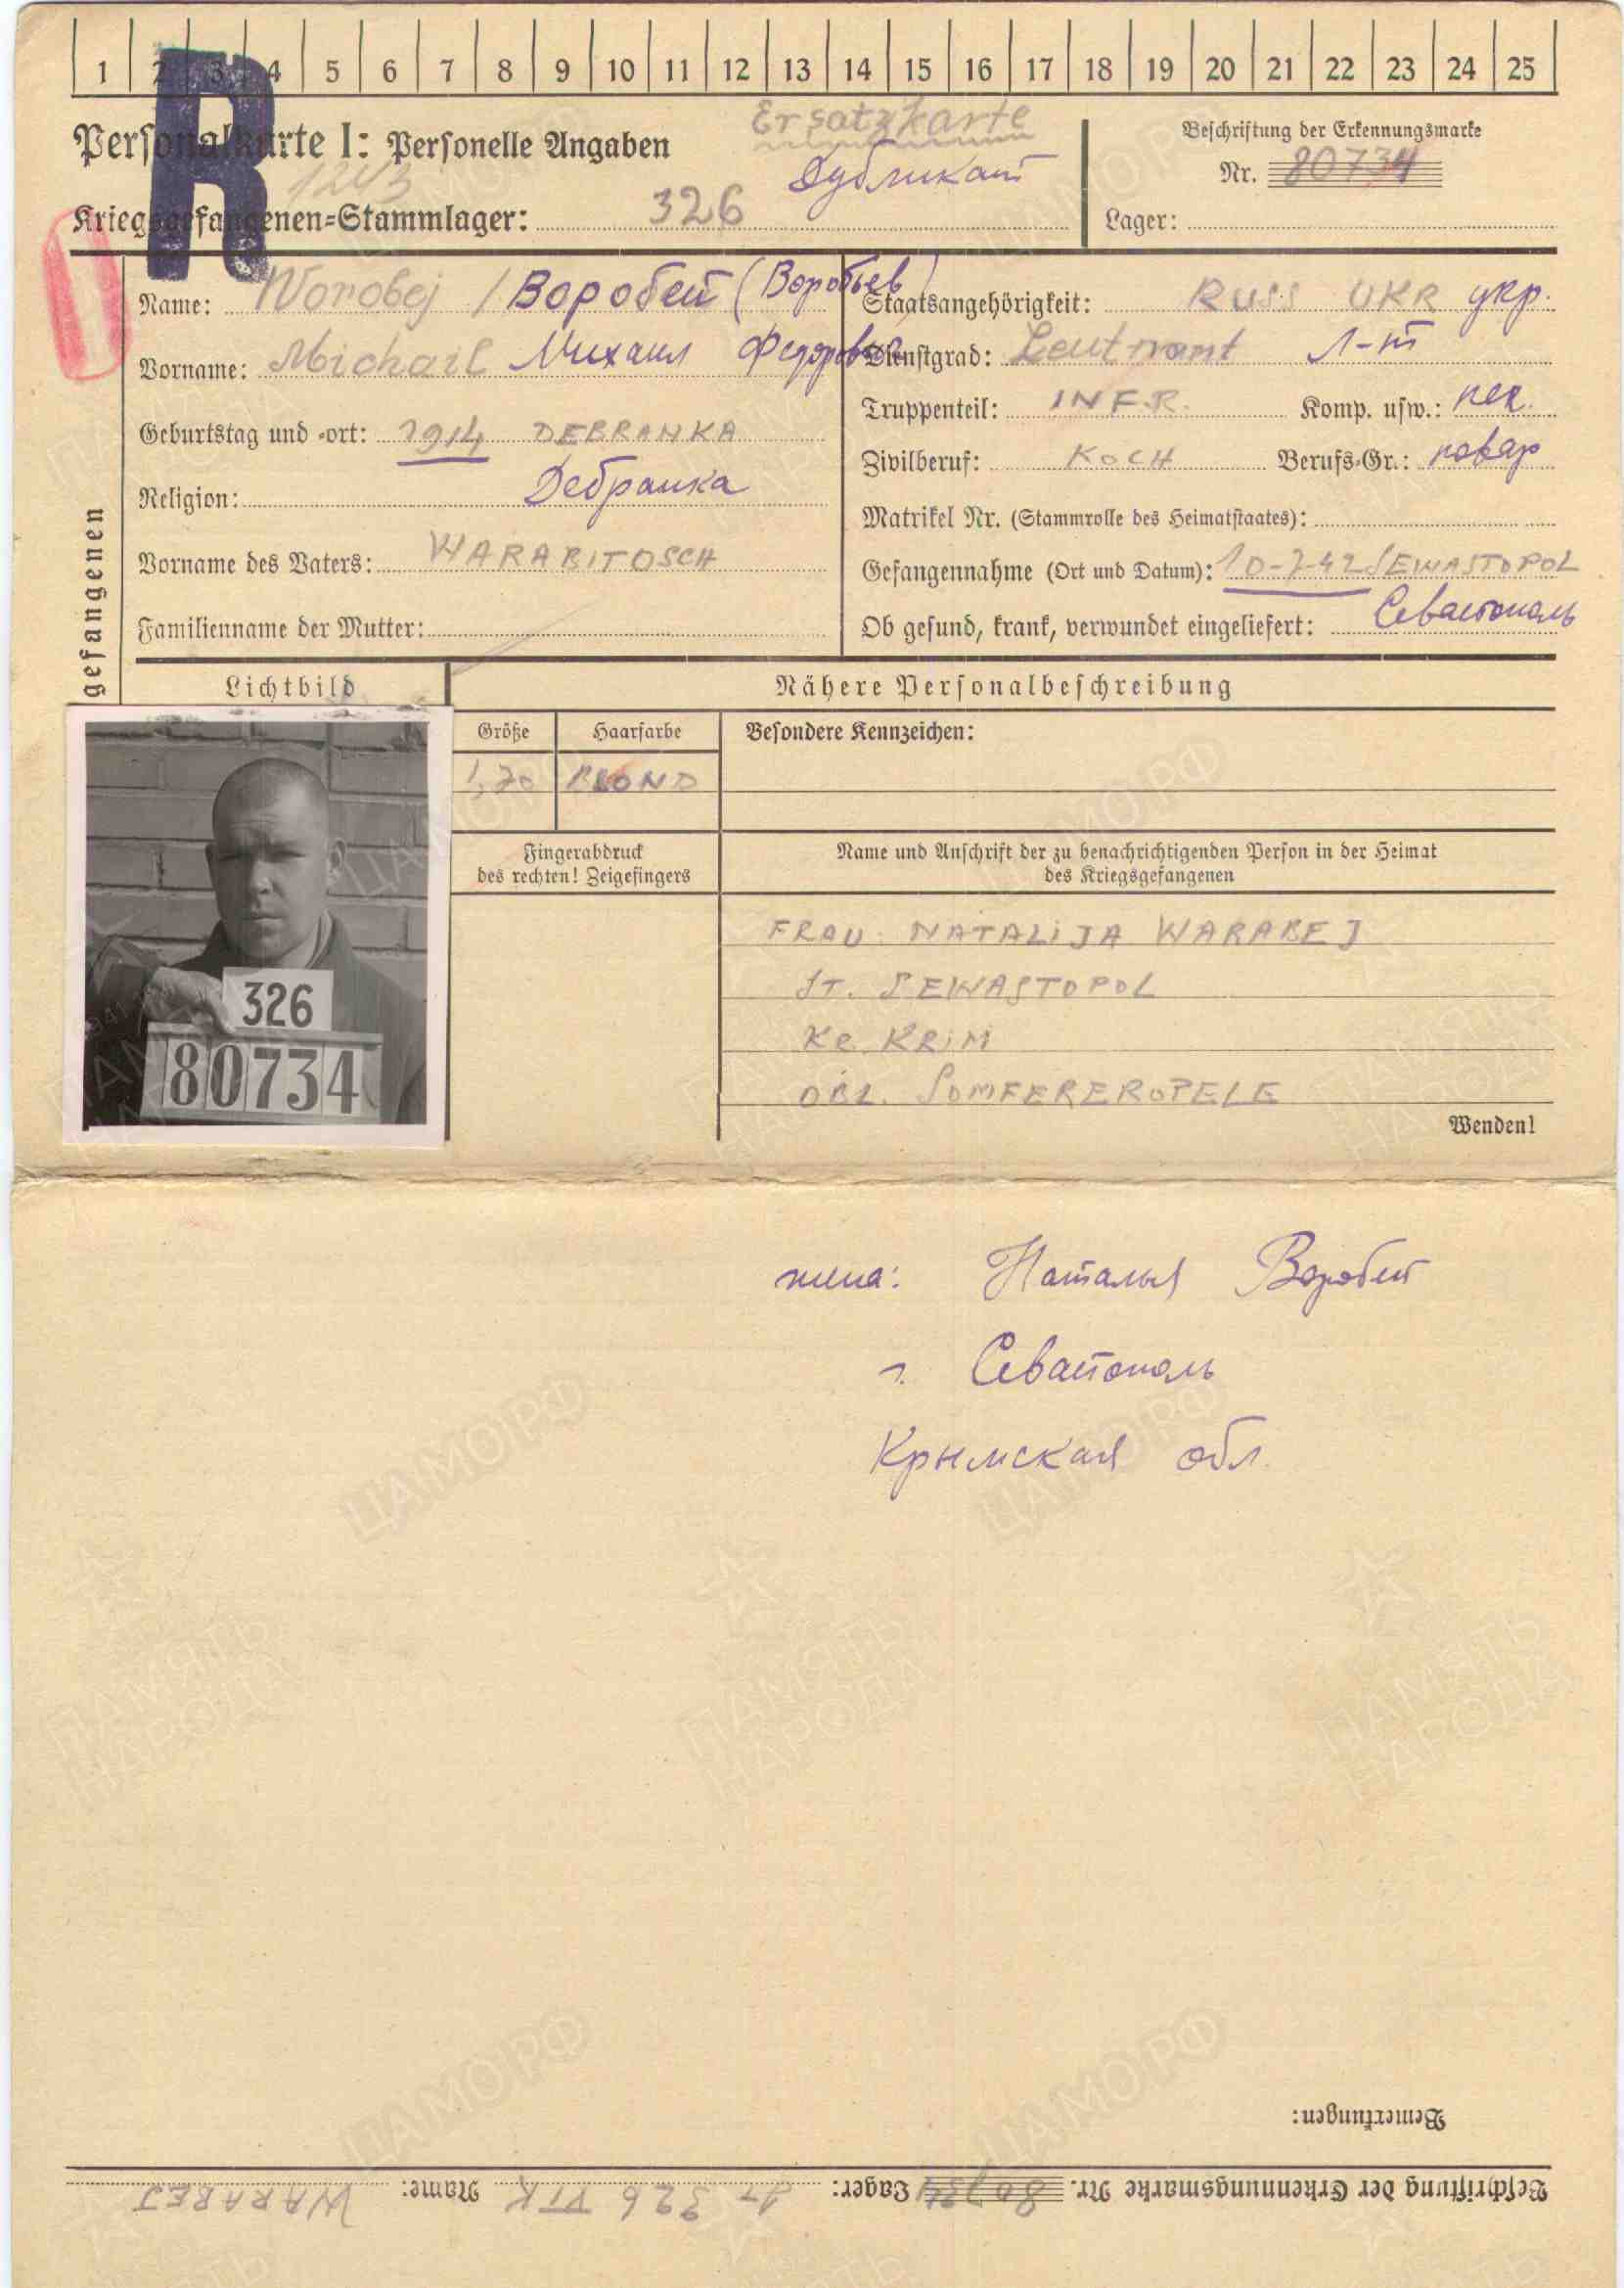 1 2 3 4 5 6 7 8 9 10 11 12 13 14 15 16 17 18 19 20 21 22 23 24 25
R
Personalkarte I: Personelle Angaben
Ersatzkarte
Дубликат
1243
Kriegsgefangenen-Stammlager: 326
Beschriftung der Erkennungsmarke
Nr. 80734
Lager:
gefangenen
Name: Worobej / Воробей (Воробьев)
Vorname: Michail Михаил Федорович
Geburtstag und -ort: 1914 DEBRANKA
Religion: Дебранка
Vorname des Vaters: WARABITOSCH
Familienname der Mutter:
Staatsangehörigkeit: RUSS UKR укр.
Dienstgrad: Leutnant Л-т
Truppenteil: INF.R. Komp. usw.: пех.
Zivilberuf: KOCH Berufs-Gr.: повар
Matrikel Nr. (Stammrolle des Heimatstaates):
Gefangennahme (Ort und Datum): 10-7-42 SEWASTOPOL
Ob gesund, krank, verwundet eingeliefert: Севастополь
Lichtbild
Nähere Personalbeschreibung
Größe
Haarfarbe
Besondere Kennzeichen:
1,70
BLOND
Fingerabdruck
des rechten! Zeigefingers
Name und Anschrift der zu benachrichtigenden Person in der Heimat
des Kriegsgefangenen
FRAU NATALIJA WARABEJ
ST. SEWASTOPOL
KR. KRIM
OBL. SOMFEREROPELE
326
80734
Wenden!
жена: Наталья Воробей
г. Севастополь
Крымская обл.
Bemerkungen:
Beschriftung der Erkennungsmarke Nr. 80734 Lager: 326 VI K Name: WARABEJ
ЦАМО РФ
ПАМЯТЬ
НАРОДА